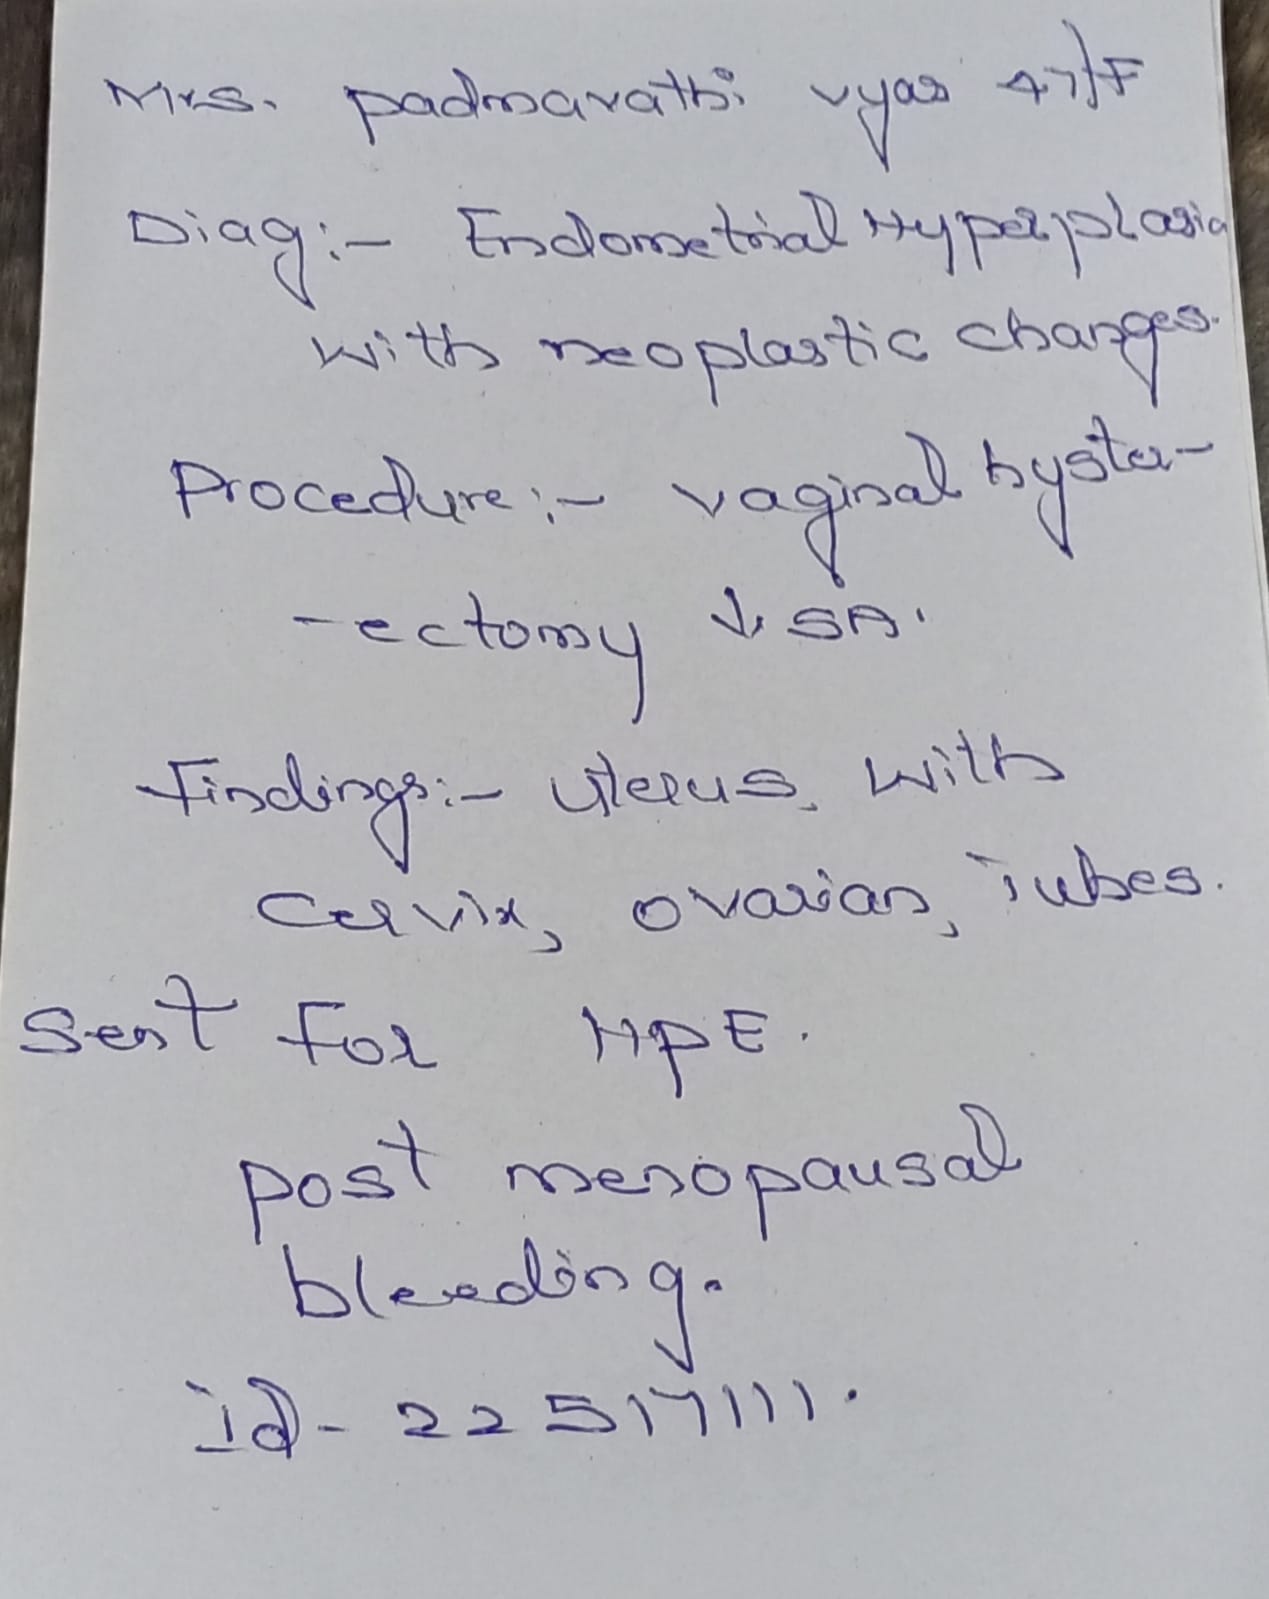 Mrs. padmavathi vyas 47/F
Diag:- Endometrial Hyperplasia
with neoplastic changes.
Procedure:- vaginal hyster-
-ectomy ↓ SA.
Findings:- uterus, with
cervix, ovarian, Tubes.
Sent For HPE.
post menopausal
bleeding.
id- 22517111.